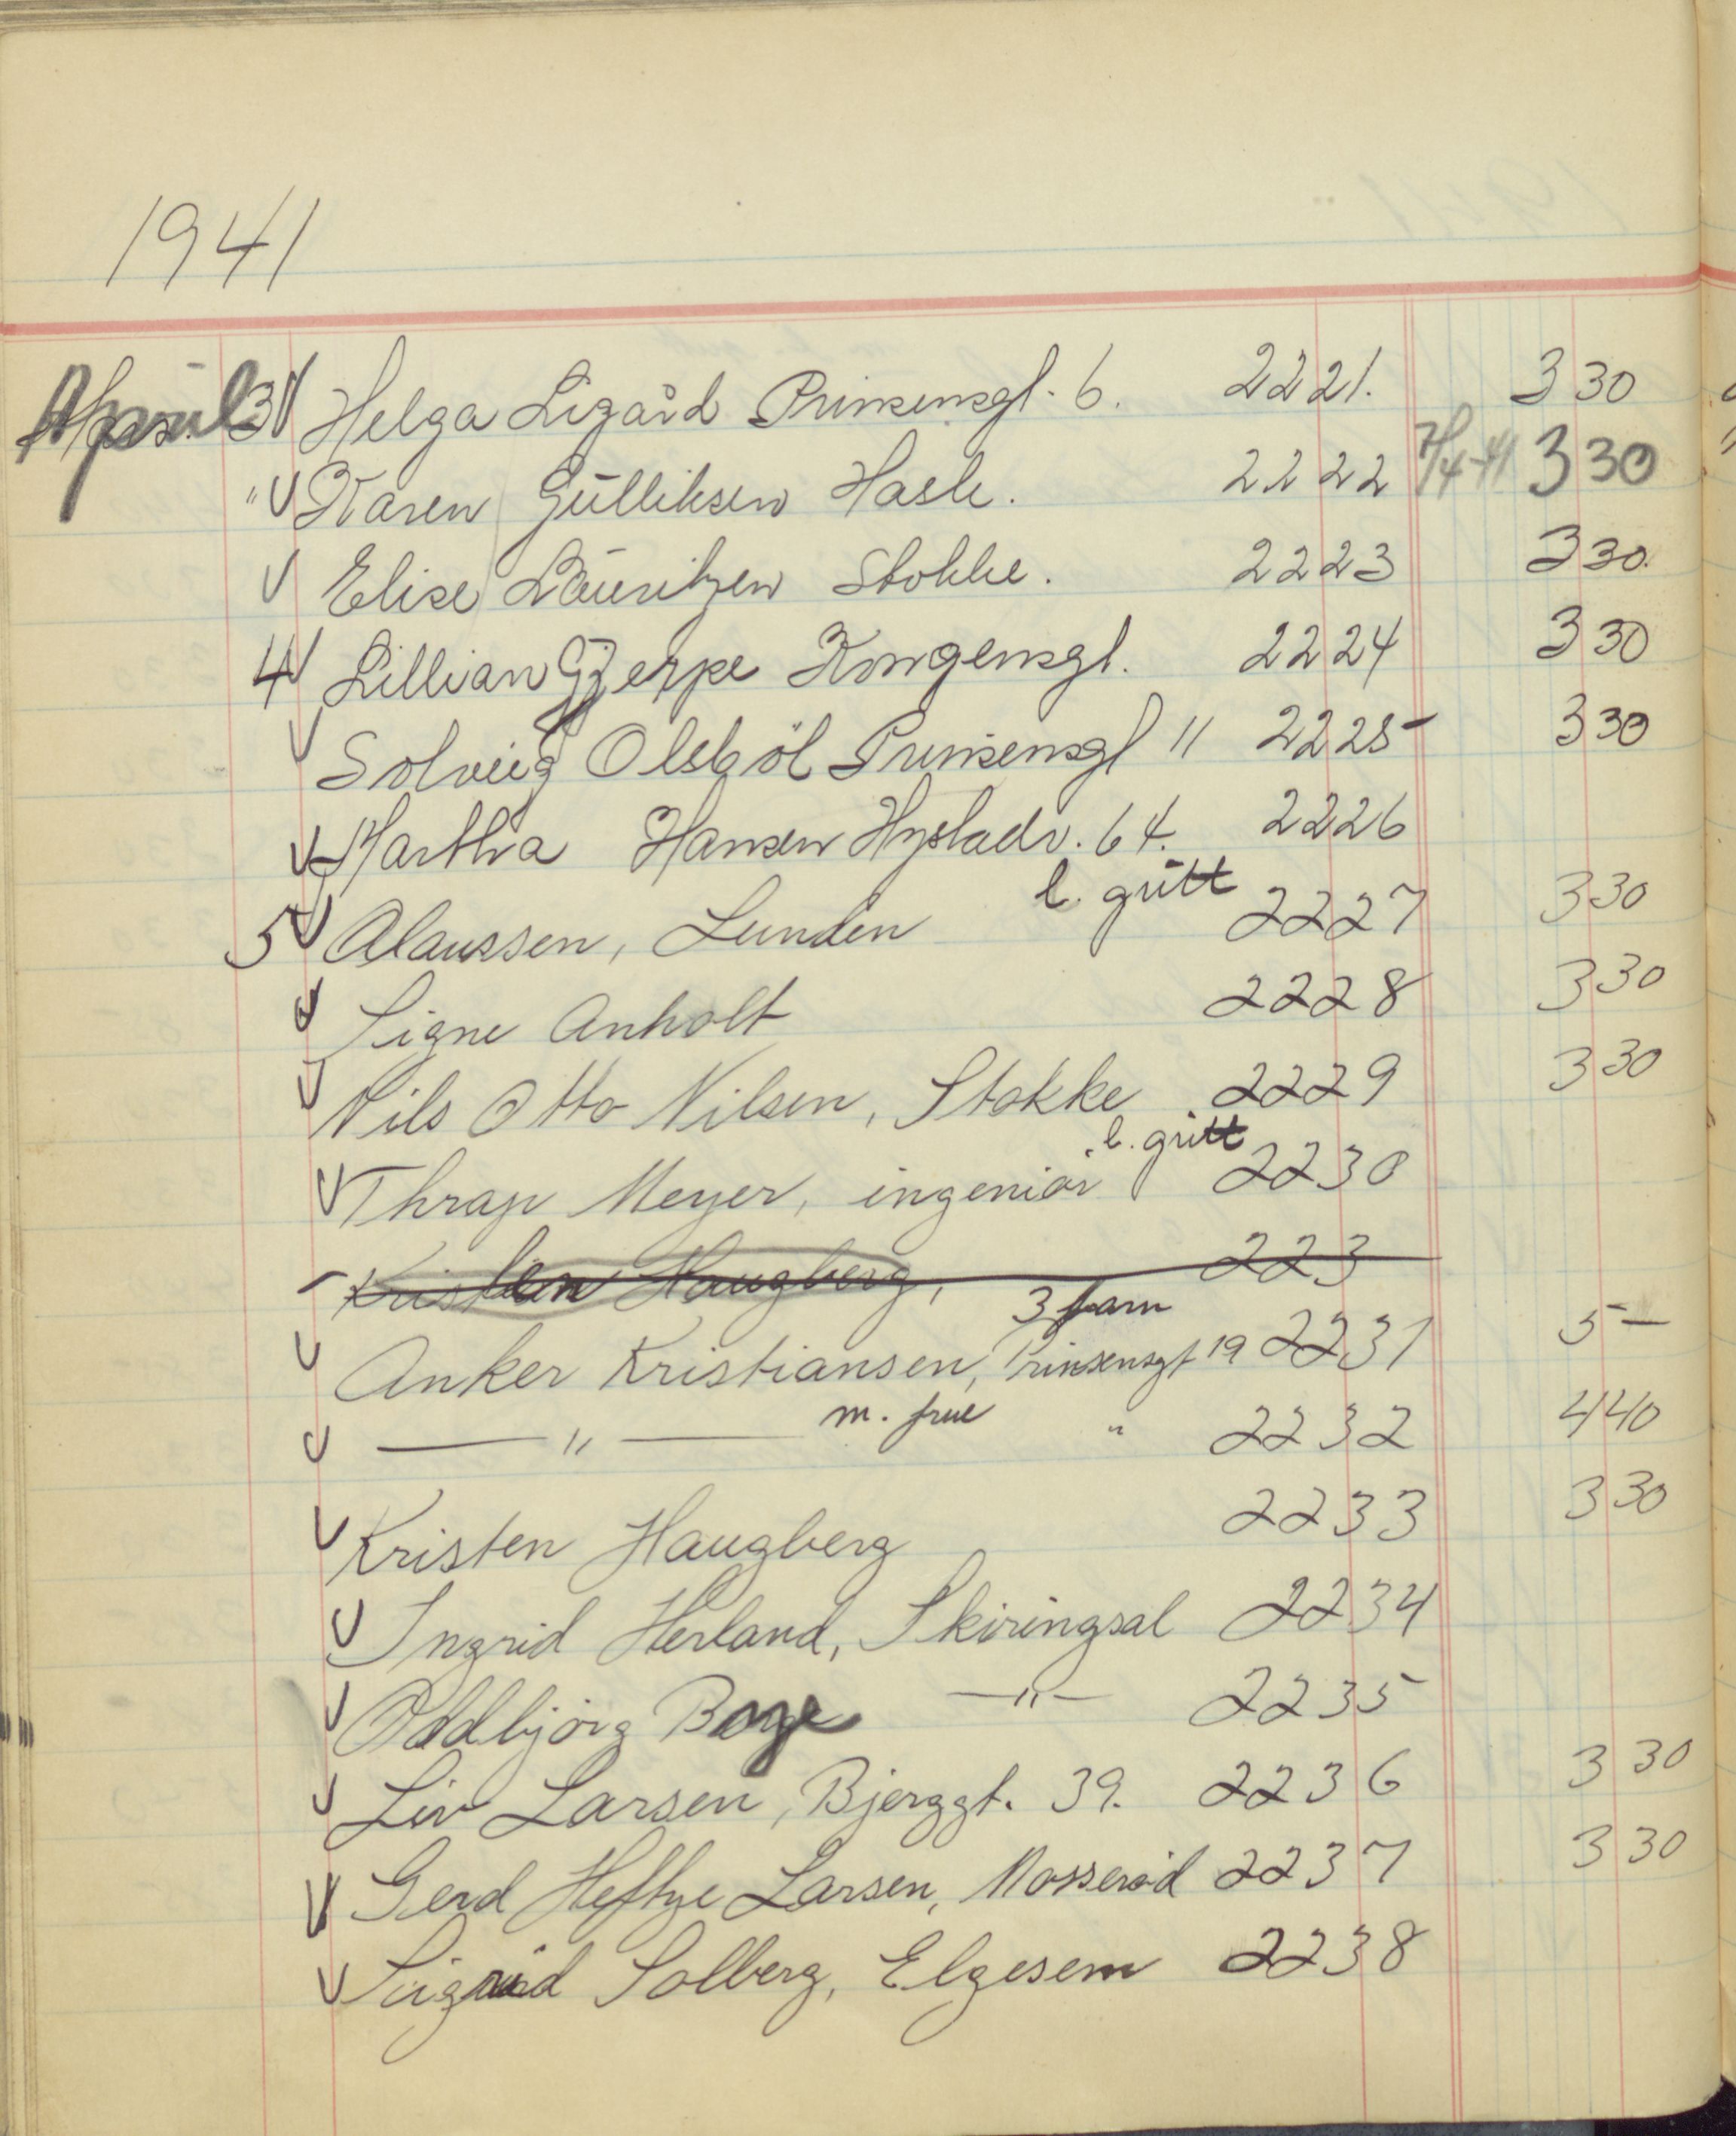 1941
April 3 Helga Lizård Prinsensgt. 6. 2221. 3 30
" Karen Gulliksen Hasle. 2222 7/4-41 3 30
Elise Lauritzen Stokke. 2223 3 30.
4 Lillian Gjerpe Kongensgt. 2224 3 30
Solveig Olsböl Prinsensgt 11 2225 3 30
Martha Hansen Hystadv. 64. 2226
5 Olaussen, Lunden l. gutt 2227 3 30
Signe Anholt 2228 3 30
Nils Otto Nilsen, Stokke 2229 3 30
Thrap Meyer, ingeniør l. gutt 2230
Kristen Haugberg, 223
Anker Kristiansen, Prinsensgt 19 3 barn 2231 5 —
— " — m. frue " 2232 4 40
Kristen Haugberg 2233 3 30
Ingrid Herland, Skiringsal 2234
Oddbjørg Boge — " — 2235
Liv Larsen, Bjerggt. 39. 2236 3 30
Gerd Heftye Larsen, Mosserød 2237 3 30
Sigrid Solberg, Elgesem 2238